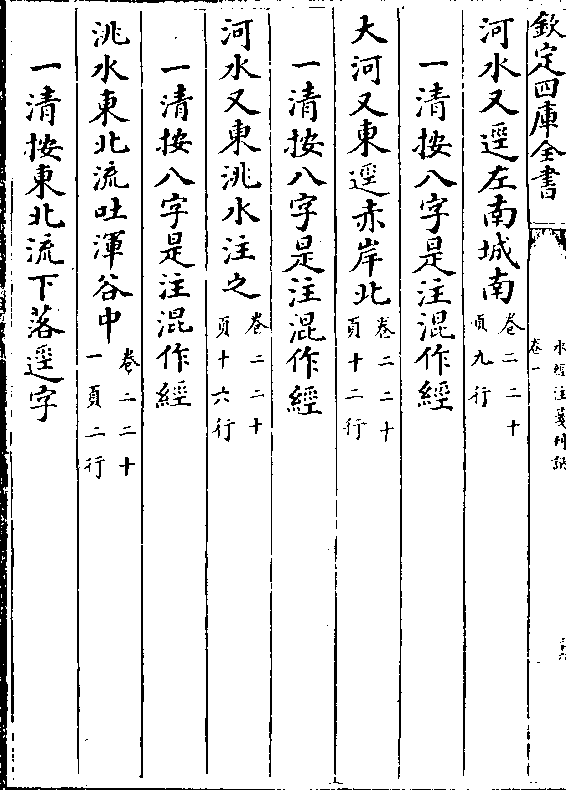 欽定四庫全書
水經注箋刊誤
卷一
河水又逕左南城南 卷二二十頁九行
一清按八字是注混作經
大河又東逕赤岸北 卷二二十頁十二行
一清按八字是注混作經
河水又東洮水注之 卷二二十頁十六行
一清按八字是注混作經
洮水東北流吐渾谷中 卷二二十一頁二行
一清按東北流下落逕字